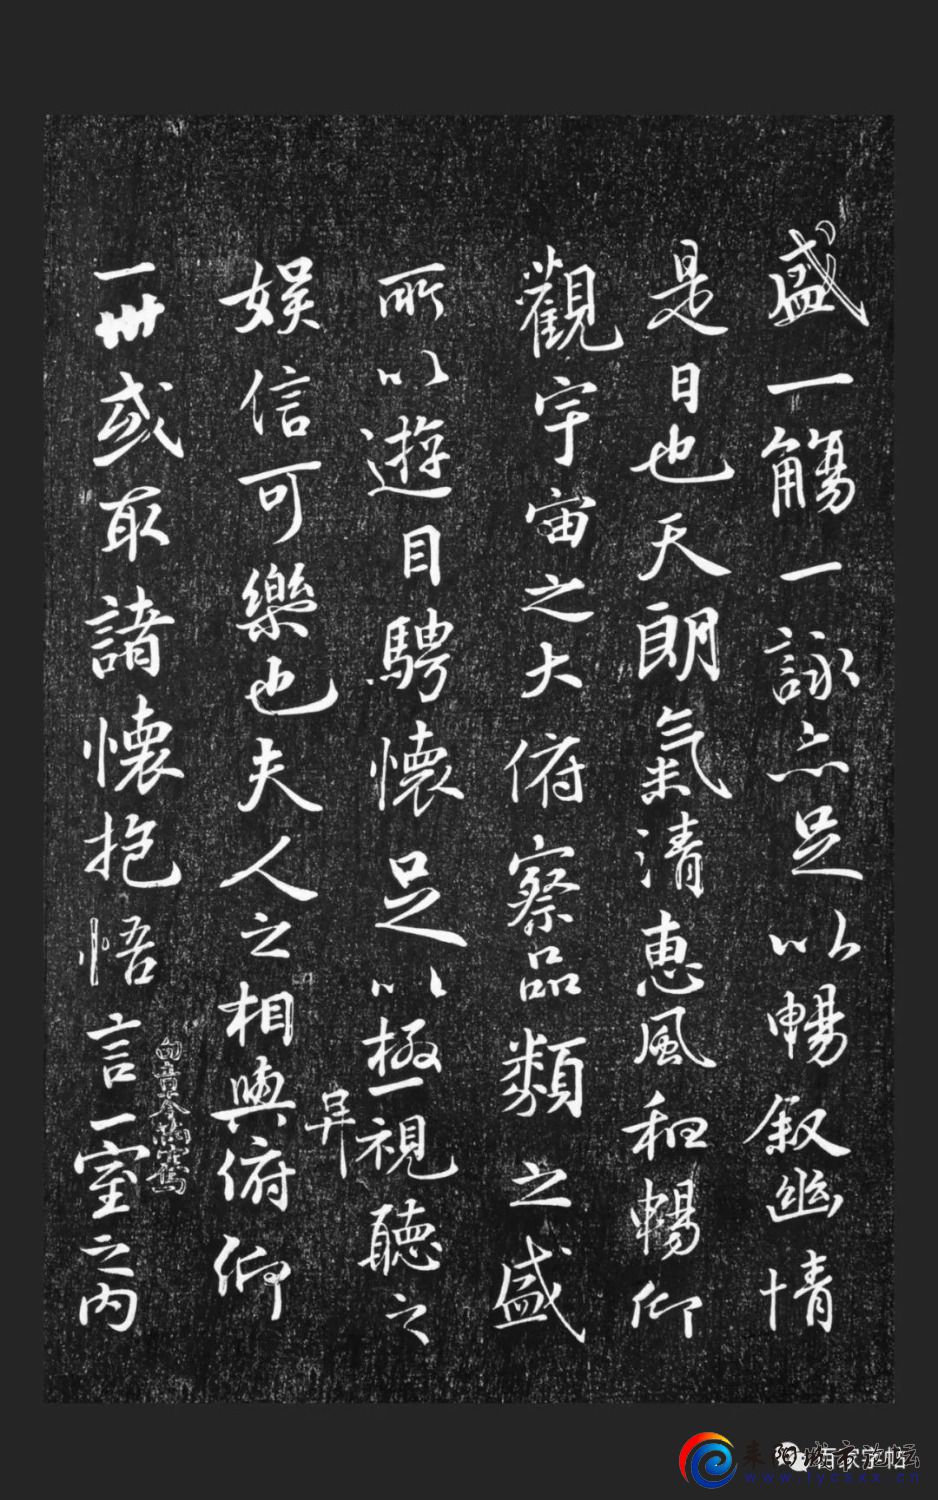 盛一觴一詠亦足以暢叙幽情
是日也天朗氣清惠風和暢仰
觀宇宙之大俯察品類之盛
所以遊目騁懷足以極視聽之
娛信可樂也夫人之相與俯仰
一世或取諸懷抱悟言一室之內
耒阳城市论坛
www.lycsxx.cn